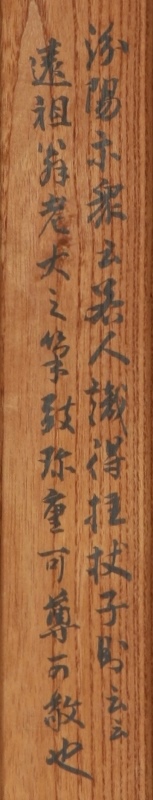 汾陽示衆云若人識得拄杖子則云云
遠祖翁老大之筆致珎重可尊可敬也